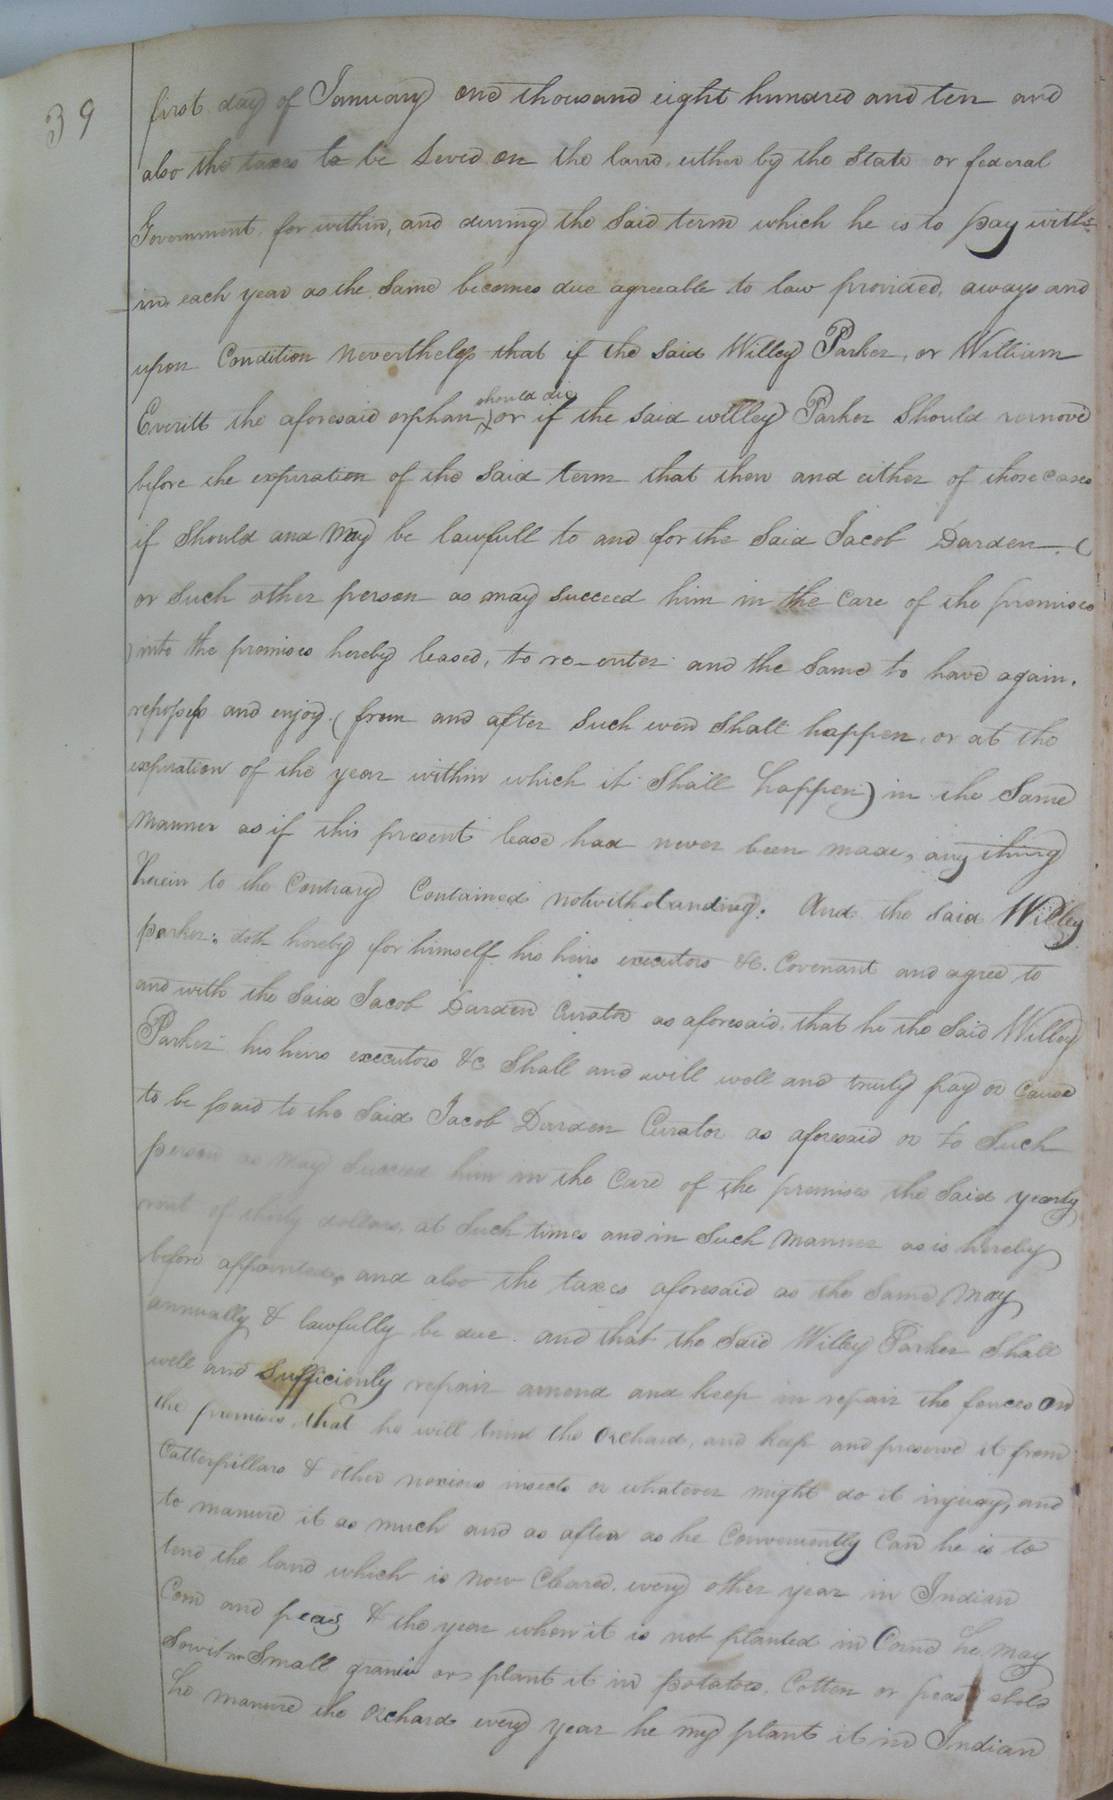 39
first day of January one thousand eight hundred and ten and
also the taxes to be Leved on the land, either by the State or federal
Government, for within, and during the Said term which he is to pay with=
in each year as the Same becomes due agreeable to law provided, aways and
upon Condition nevertheless that if the said Willey Parker, or William
should die
Everitt the aforesaid orphan, or if the said willey Parker Should remove
before the expiration of the Said term that then and either of those cases
if Should and may be lawfull to and for the Said Jacob Darden (
or Such other person as may succeed him in the care of the premises
) into the premises hereby leased, to re-enter and the Same to have again,
repossess and enjoy (from and after Such even Shall happen, or at the
expiration of the year within which it Shall happen) in the Same
manner as if this present lease had never been made, any thing
herein to the Contrary Contained notwithstanding. And the said Willey
parker: doth hereby for himself his heirs executors &c. Covenant and agree to
and with the Said Jacob Darden Curator as aforesaid, that he the Said Willey
Parker his heirs executors &c Shall and will well and truly pay or cause
to be paid to the Said Jacob Darden Curator as aforesaid or to Such
person as may Succeed him in the Care of the premises the Said yearly
rent of thirty dollars, at Such times and in Such manner as is hereby
before appointed, and also the taxes aforesaid as the Same may
annually & lawfully be due. and that the Said Willey Parker Shall
well and Sufficienly repair amend and keep in repair the fences on
the premises, that he will trim the Orchard, and keep and preserve it from
Catterpillars & other noxious insects or whatever might do it injury, and
to manure it as much and as often as he Conveniently Can he is to
tend the land which is now Cleared, every other year in Indian
Corn and peas & the year when it is not planted in Corne he may
Sow it in Small grain or plant it in potatoes, Cotten or peas
he manure the Orchard every year he my plant it in Indian